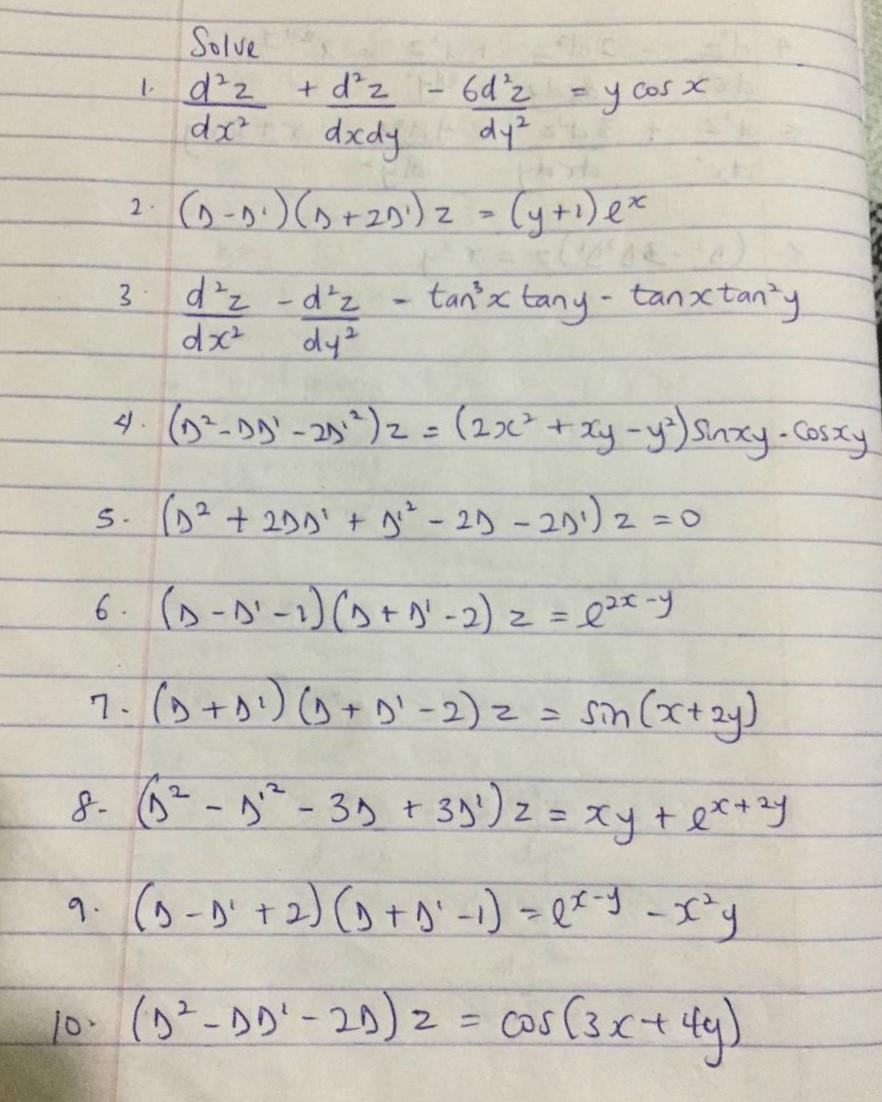 Solve
1. d²z/dx² + d²z/dxdy - 6d²z/dy² = y cos x
2. (D-D')(D+2D')z = (y+1)eˣ
3. d²z/dx² - d²z/dy² - tan³x tany - tanx tan²y
4. (D²-DD'-2D'²)z = (2x²+xy-y²) Sinxy - Cosxy
5. (D² + 2DD' + D'² - 2D - 2D')z = 0
6. (D-D'-1)(D+D'-2)z = e²ˣ⁻ʸ
7. (D+D')(D+D'-2)z = sin(x+2y)
8. (D² - D'² - 3D + 3D')z = xy + eˣ⁺²ʸ
9. (D-D'+2)(D+D'-1) = eˣ⁻ʸ - x²y
10. (D²-DD'-2D)z = cos(3x+4y)